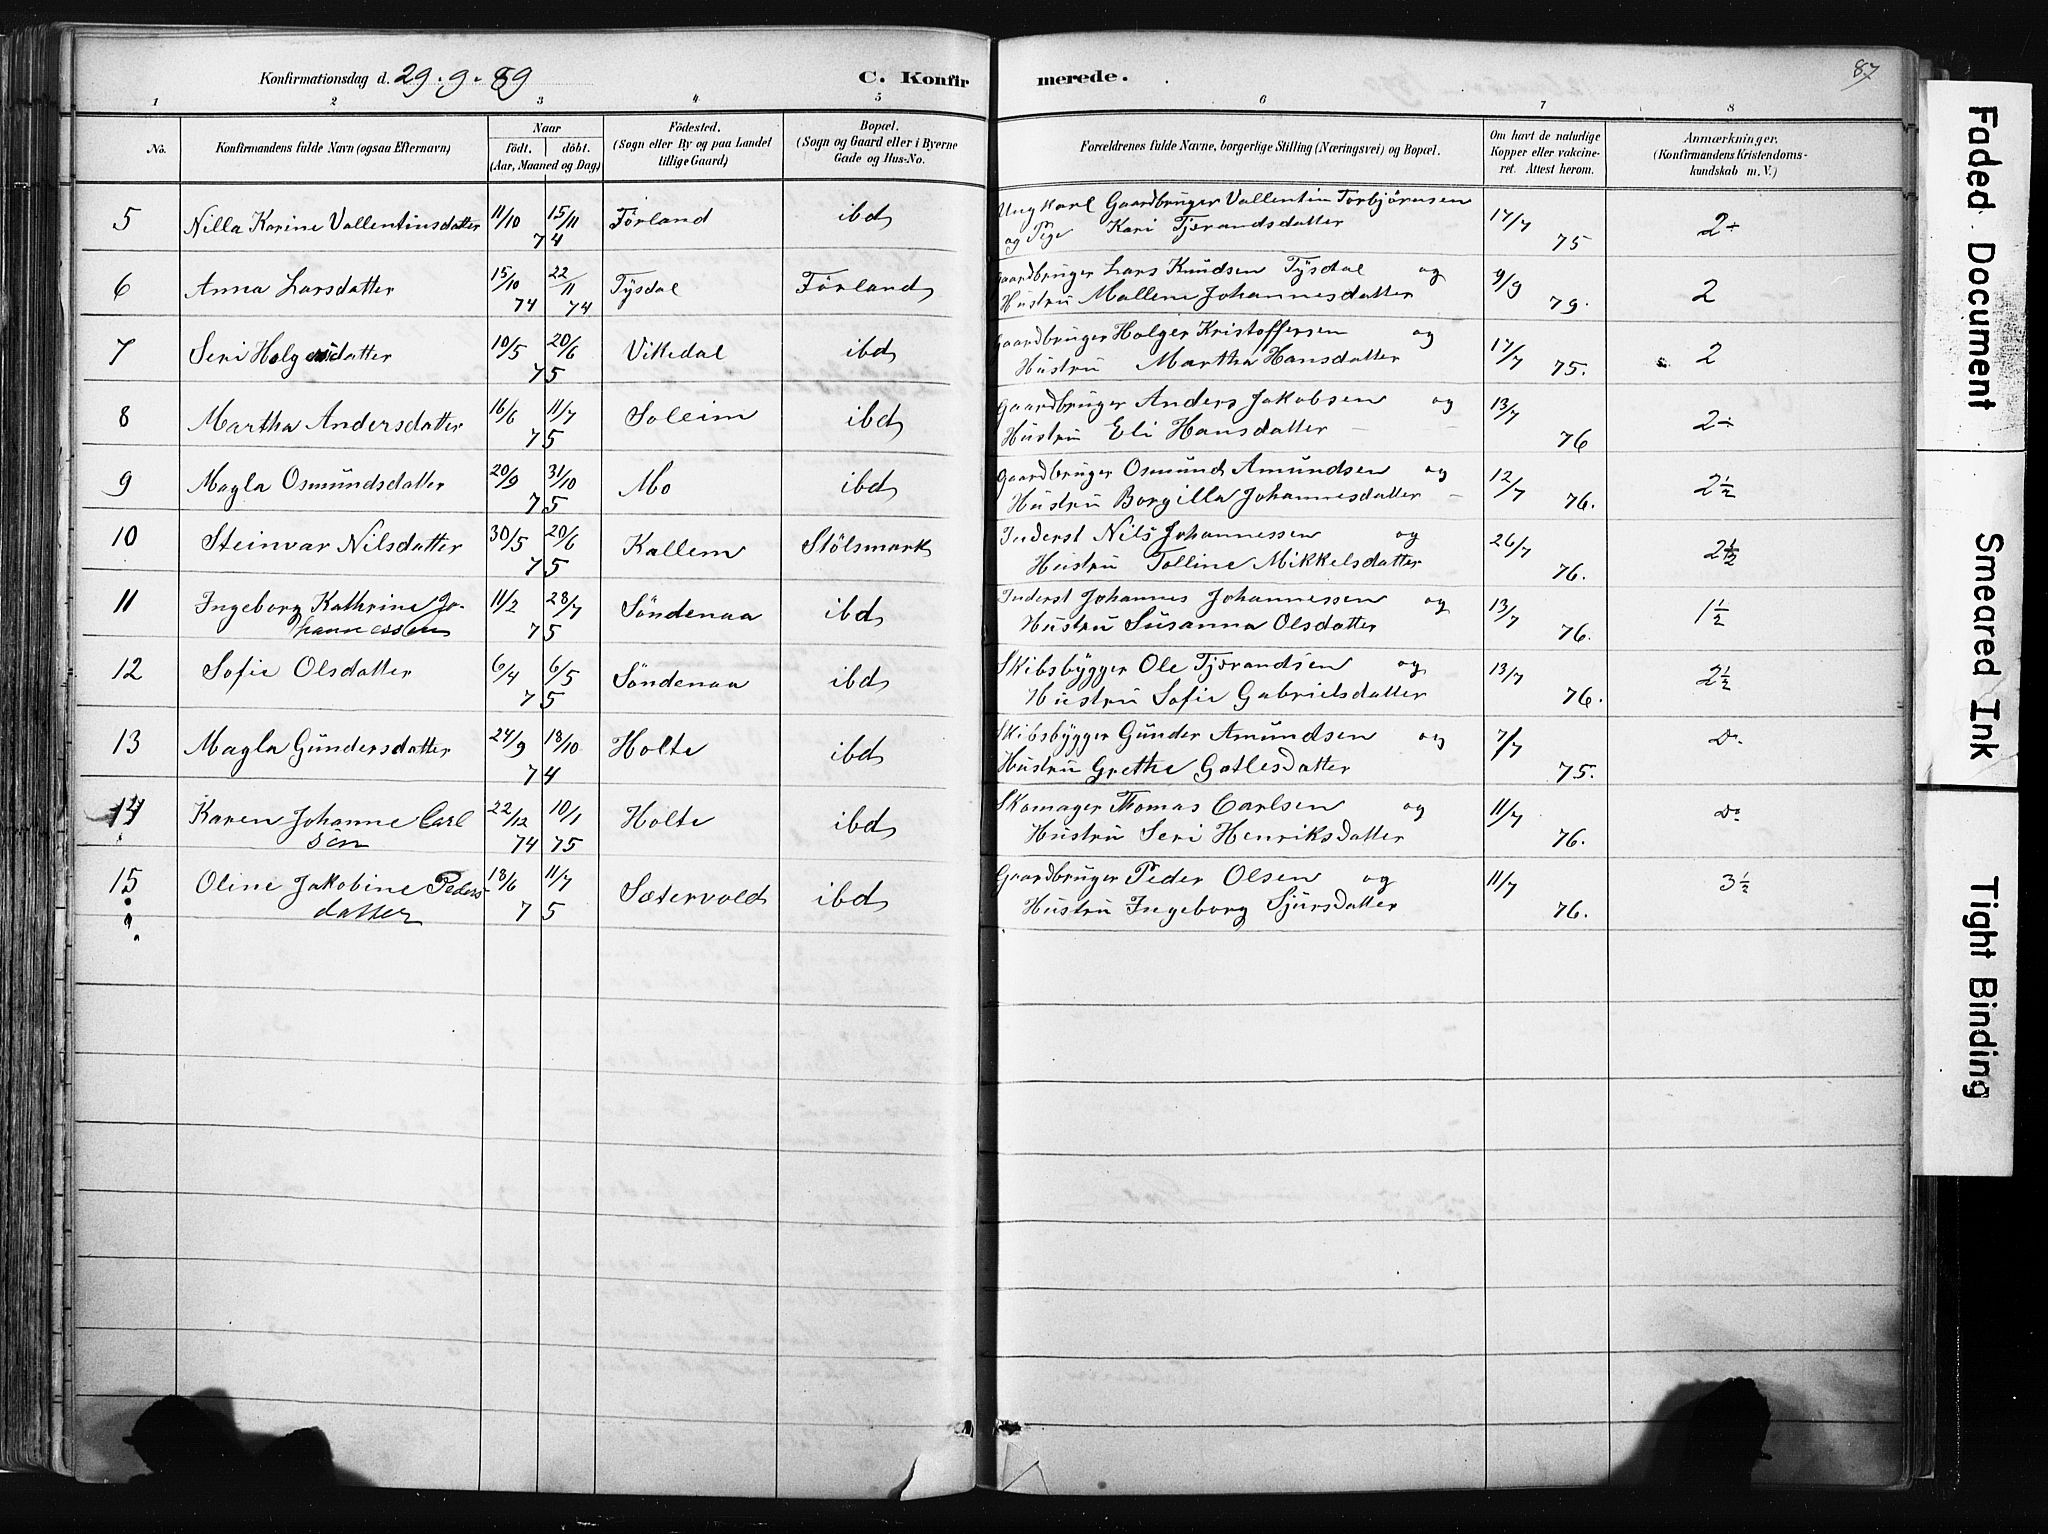 Konfirmationsdag d. 29-9-89 C. Konfirmerede. 87
1 2 3 4 5 6 7 8
No. Konfirmandens fulde Navn (ogsaa Efternavn) Naar födt. döbt. (Aar, Maaned og Dag) Födested. (Sogn eller By og paa Landet tillige Gaard) Bopæl. (Sogn og Gaard eller i Byerne Gade og Hus-No. Forældrenes fulde Navne, borgerlige Stilling (Næringsvei) og Bopæl. Om havt de naturlige Kopper eller vakcineret. Attest herom. Anmærkninger. (Konfirmandens Kristendomskundskab m. V.)
5 Nilla Karine Vallentinsdatter 11/10 15/11 74 Förland ibd Ungkarl Gaardbruger Vallentin Torbjörnsen
og Pige Kari Tjerandsdatter 17/7 75 2÷
6 Anna Larsdatter 15/10 74 22/11 74 Tysdal Förland Gaardbruger Lars Knudsen Tysdal og
Hustru Mallene Johannesdatter 9/9 79. 2
7 Seri Holgersdatter 10/5 20/6 75 Vittedal ibd Gaardbruger Holger Kristoffersen og
Hustru Martha Hansdatter 17/7 75. 2
8 Martha Andersdatter 16/6 11/7 75 Soleim ibd Gaardbruger Anders Jakobsen og
Hustru Eli Hansdatter 13/7 76 2÷
9 Magla Osmundsdatter 20/9 31/10 75 Mo ibd Gaardbruger Osmund Amundsen og
Hustru Borgilla Johannesdatter 12/7 76. 2½
10 Steinvar Nilsdatter 30/5 20/6 75 Kallem Stölsmark Inderst Nils Johannessen og
Hustru Tolline Mikkelsdatter 26/7 76. 2½
11 Ingeborg Kathrine Jo-
hannessen 11/2 28/7 75 Söndenaa ibd Inderst Johannes Johannessen og
Hustru Susanna Olsdatter 13/7 76. 1½
12 Sofie Olsdatter 6/4 6/5 75 Söndenaa ibd Skibsbygger Ole Tjerandsen og
Hustru Sofie Gabrielsdatter 13/7 76. 2½
13 Magla Gundersdatter 24/9 18/10 74 Holte ibd Skibsbygger Gunder Amundsen og
Hustru Grethe Gotlesdatter 7/7 75. Do
14 Karen Johanne Carl
sen 22/12 74 10/1 75 Holte ibd Skomager Thomas Carlsen og
Hustru Seri Henriksdatter 11/7 76. Do
15 Oline Jakobine Peders
datter 18/6 11/7 75 Sætervold ibd Gaardbruger Peder Olsen og
Hustru Ingeborg Sjursdatter 11/7 76. 3½
Faded Document
Smeared Ink
Tight Binding